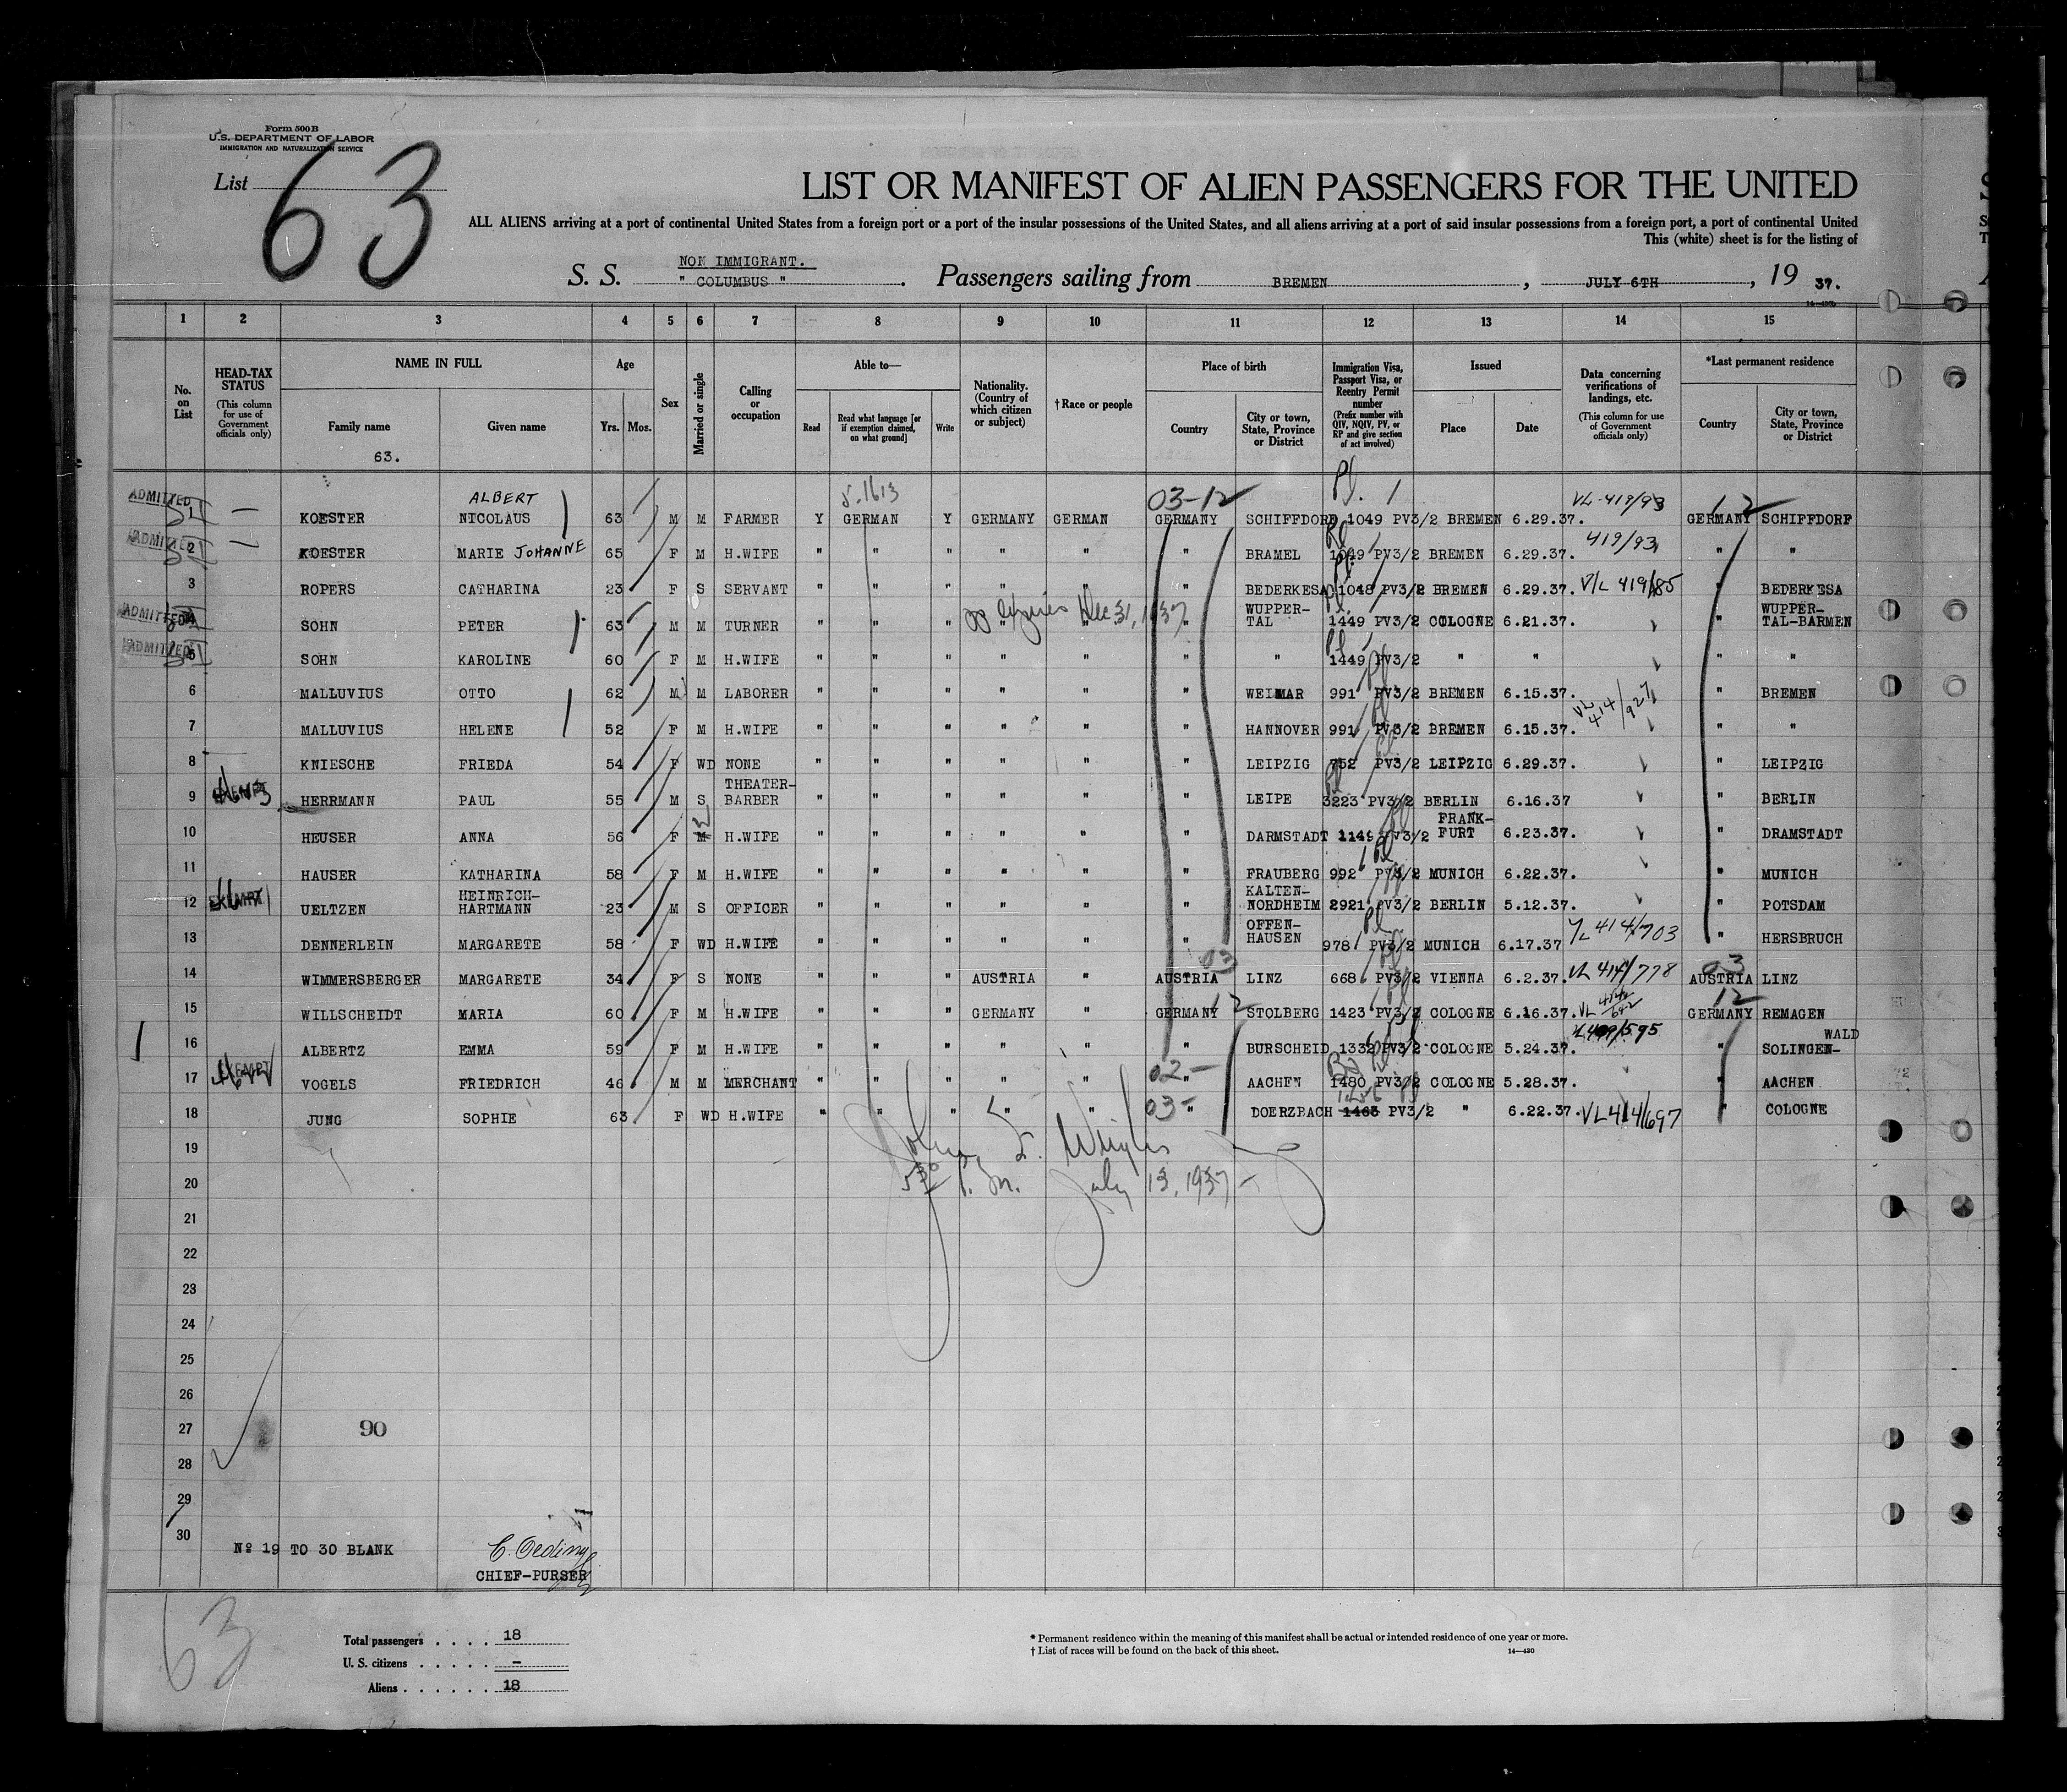 Form 500B
U.S. DEPARTMENT OF LABOR
IMMIGRATION AND NATURALIZATION SERVICE
List 63
LIST OR MANIFEST OF ALIEN PASSENGERS FOR THE UNITED
ALL ALIENS arriving at a port of continental United States from a foreign port or a port of the insular possessions of the United States, and all aliens arriving at a port of said insular possessions from a foreign port, a port of continental United
This (white) sheet is for the listing of
NON IMMIGRANT.
S. S. " COLUMBUS " . Passengers sailing from BREMEN , JULY 6TH , 19 37.
1 2 3 4 5 6 7 8 9 10 11 12 13 14 15
No. on List
HEAD-TAX STATUS (This column for use of Government officials only)
NAME IN FULL Family name Given name
63.
Age Yrs. Mos.
Sex
Married or single
Calling or occupation
Able to— Read Read what language [or if exemption claimed, on what ground] Write
Nationality. (Country of which citizen or subject)
†Race or people
Place of birth Country City or town, State, Province or District
Immigration Visa, Passport Visa, or Reentry Permit number (Prefix number with QIV, NQIV, PV, or RP and give section of act involved)
Issued Place Date
Data concerning verifications of landings, etc. (This column for use of Government officials only)
*Last permanent residence Country City or town, State, Province or District
ADMITTED ALBERT 5-1613 03-12 VL-419/93 12
KOESTER NICOLAUS 63 M M FARMER Y GERMAN Y GERMANY GERMAN GERMANY SCHIFFDORF 1049 PV3/2 BREMEN 6.29.37. GERMANY SCHIFFDORF
ADMITTED 2 KOESTER MARIE JOHANNE 65 F M H.WIFE " " " " " " BRAMEL 1049 PV3/2 BREMEN 6.29.37. 419/93 " "
3 ROPERS CATHARINA 23 F S SERVANT " " " " " " BEDERKESA 1048 PV3/2 BREMEN 6.29.37. V/L 419/85 " BEDERKESA
expires Dec 31, 1937
ADMITTED 4 SOHN PETER 63 M M TURNER " " " " " " WUPPER-TAL 1449 PV3/2 COLOGNE 6.21.37. " WUPPER-TAL-BARMEN
ADMITTED 5 SOHN KAROLINE 60 F M H.WIFE " " " " " " " 1449 PV3/2 " " " "
6 MALLUVIUS OTTO 62 M M LABORER " " " " " " WEIMAR 991 PV3/2 BREMEN 6.15.37. VL 414/927 " BREMEN
7 MALLUVIUS HELENE 52 F M H.WIFE " " " " " " HANNOVER 991 PV3/2 BREMEN 6.15.37. " "
8 KNIESCHE FRIEDA 54 F WD NONE " " " " " " LEIPZIG 752 PV3/2 LEIPZIG 6.29.37. " LEIPZIG
9 HERRMANN PAUL 55 M S THEATER-BARBER " " " " " " LEIPE 3223 PV3/2 BERLIN 6.16.37 " BERLIN
10 HEUSER ANNA 56 F M H.WIFE " " " " " " DARMSTADT 1149 PV3/2 FRANK-FURT 6.23.37. " DRAMSTADT
11 HAUSER KATHARINA 58 F M H.WIFE " " " " " " FRAUBERG 992 PV3/2 MUNICH 6.22.37. " MUNICH
12 EXEMPT UELTZEN HEINRICH-HARTMANN 23 M S OFFICER " " " " " " KALTEN-NORDHEIM 2921 PV3/2 BERLIN 5.12.37. " POTSDAM
13 DENNERLEIN MARGARETE 58 F WD H.WIFE " " " " " " OFFEN-HAUSEN 978 PV3/2 MUNICH 6.17.37 VL 414/703 " HERSBRUCH
03 03
14 WIMMERSBERGER MARGARETE 34 F S NONE " " " AUSTRIA " AUSTRIA LINZ 668 PV3/2 VIENNA 6.2.37. VL 414/778 AUSTRIA LINZ
15 WILLSCHEIDT MARIA 60 F M H.WIFE " " " GERMANY " GERMANY 12 STOLBERG 1423 PV3/2 COLOGNE 6.16.37. VL 414/692 12 GERMANY REMAGEN
16 ALBERTZ EMMA 59 F M H.WIFE " " " " " " BURSCHEID 1332 PV3/2 COLOGNE 5.24.37. " SOLINGEN-WALD
17 EXEMPT VOGELS FRIEDRICH 46 M M MERCHANT " " " " " 02- " AACHEN 1480 PV3/2 COLOGNE 5.28.37. " AACHEN
18 JUNG SOPHIE 63 F WD H.WIFE " " " " " 03- " DOERZBACH 1463 PV3/2 " 6.22.37. VL414/697 " COLOGNE
19
20 5:30 P.M. July 13, 1937
21
22
23
24
25
26
27 90
28
29
30
Nº 19 TO 30 BLANK
CHIEF-PURSER
63
Total passengers . . . . 18
U. S. citizens . . . . . –
Aliens . . . . . . 18
* Permanent residence within the meaning of this manifest shall be actual or intended residence of one year or more.
† List of races will be found on the back of this sheet. 14—430